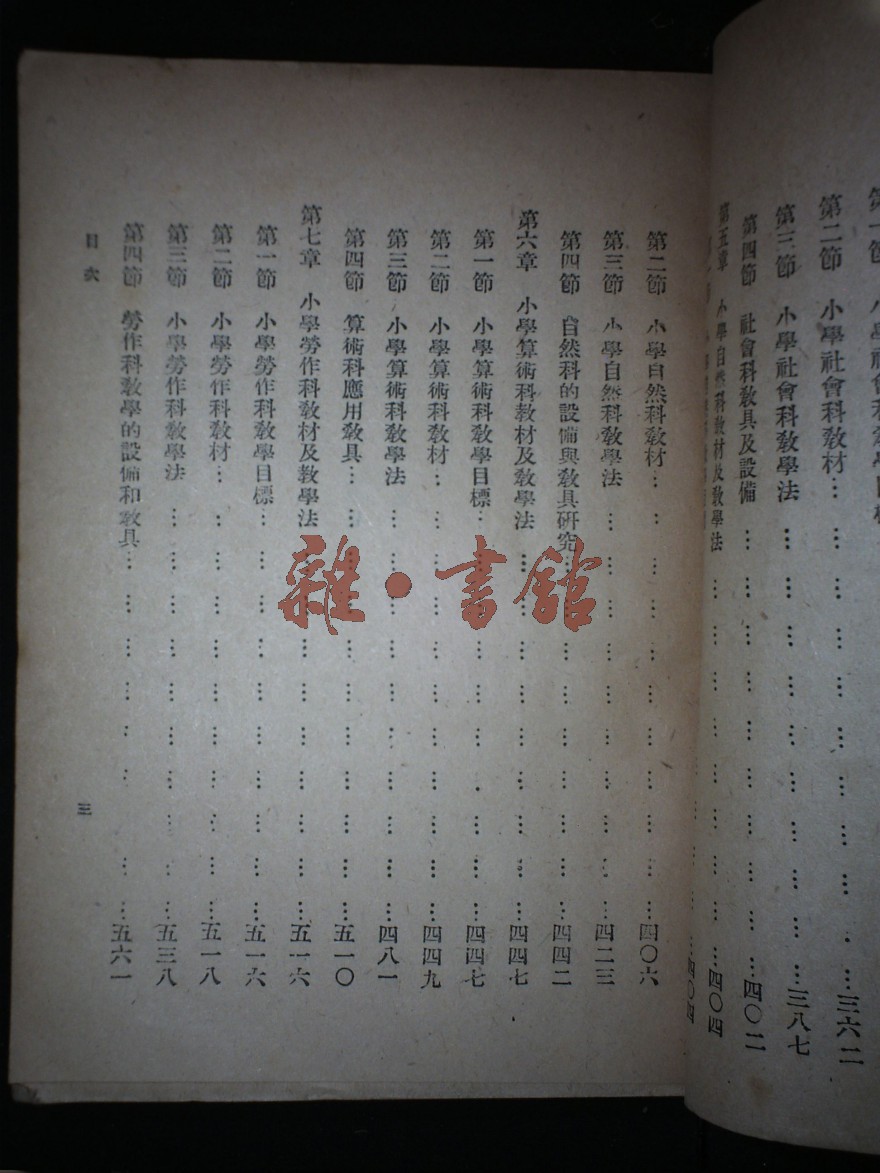 第二節 小學社會科教材…………………………三六二
第三節 小學社會科教學法…………………………三八七
第四節 社會科教具及設備…………………………四〇二
第五章 小學自然科教材及教學法…………………………四〇四
四〇四
第二節 小學自然科教材…………………………四〇六
第三節 小學自然科教學法…………………………四二三
第四節 自然科的設備與教具研究…………………………四四二
第六章 小學算術科教材及教學法…………………………四四七
第一節 小學算術科教學目標…………………………四四七
第二節 小學算術科教材…………………………四四九
第三節 小學算術科教學法…………………………四八一
第四節 算術科應用教具…………………………五一〇
第七章 小學勞作科教材及教學法…………………………五一六
第一節 小學勞作科教學目標…………………………五一六
第二節 小學勞作科教材…………………………五一八
第三節 小學勞作科教學法…………………………五三八
第四節 勞作科教學的設備和教具…………………………五六一
目次
三
雜·書館